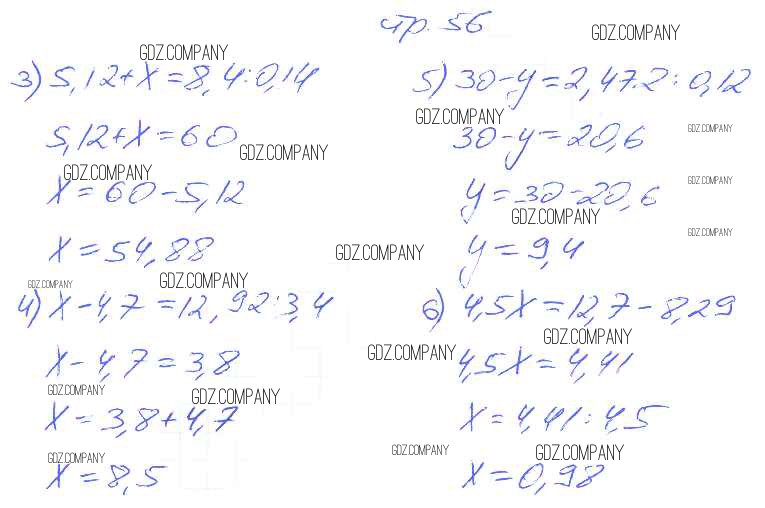 стр. 56
GDZ.COMPANY
GDZ.COMPANY
3) 5,12+x=8,4:0,14
5,12+x=60
GDZ.COMPANY
GDZ.COMPANY
x=60-5,12
x=54,88
GDZ.COMPANY
GDZ.COMPANY
GDZ.COMPANY
4) x-4,7=12,92:3,4
x-4,7=3,8
GDZ.COMPANY
GDZ.COMPANY
GDZ.COMPANY
x=3,8+4,7
GDZ.COMPANY
x=8,5
5) 30-y=2,472:0,12
GDZ.COMPANY
GDZ.COMPANY
30-y=20,6
GDZ.COMPANY
y=30-20,6
GDZ.COMPANY
GDZ.COMPANY
y=9,4
6) 4,5x=12,7-8,29
GDZ.COMPANY
4,5x=4,41
x=4,41:4,5
GDZ.COMPANY
GDZ.COMPANY
x=0,98